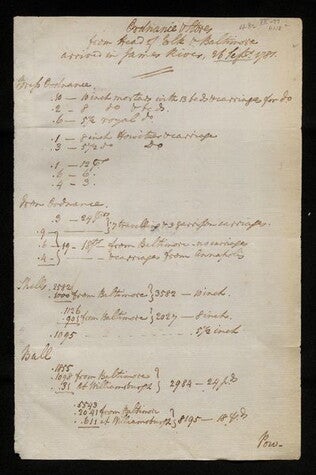 Ordnance & Stores
from Head of Elk & Baltimore
arrived in James River, 26 Sept. 1781.
Brass Ordnance.
.10 — 10 inch mortars with 13 beds & carriages for do
.2 — 8 do & beds
.6 — 5½ royal do
.1 — 8 inch howitzer & carriage
.3 — 5½ do do
.1 — 12
.6 — 6
.4 — 3
Iron Ordnance.
.3 — 24
} 7 travelling & 3 garrison carriages.
9
6 } 19 — 18 from Baltimore no carriages
4 & carriages from Annapolis
Shells.
2582
1000 from Baltimore } 3582 — 10 inch.
1126
from Baltimore } 2027 — 8 inch.
1095 — 5½ inch
Ball
1855
1098 from Baltimore
.31 at Williamsburgh } 2984 — 24
5543
.2041 from Baltimore
.611 at Williamsburgh } 8195 — 18
Pow-